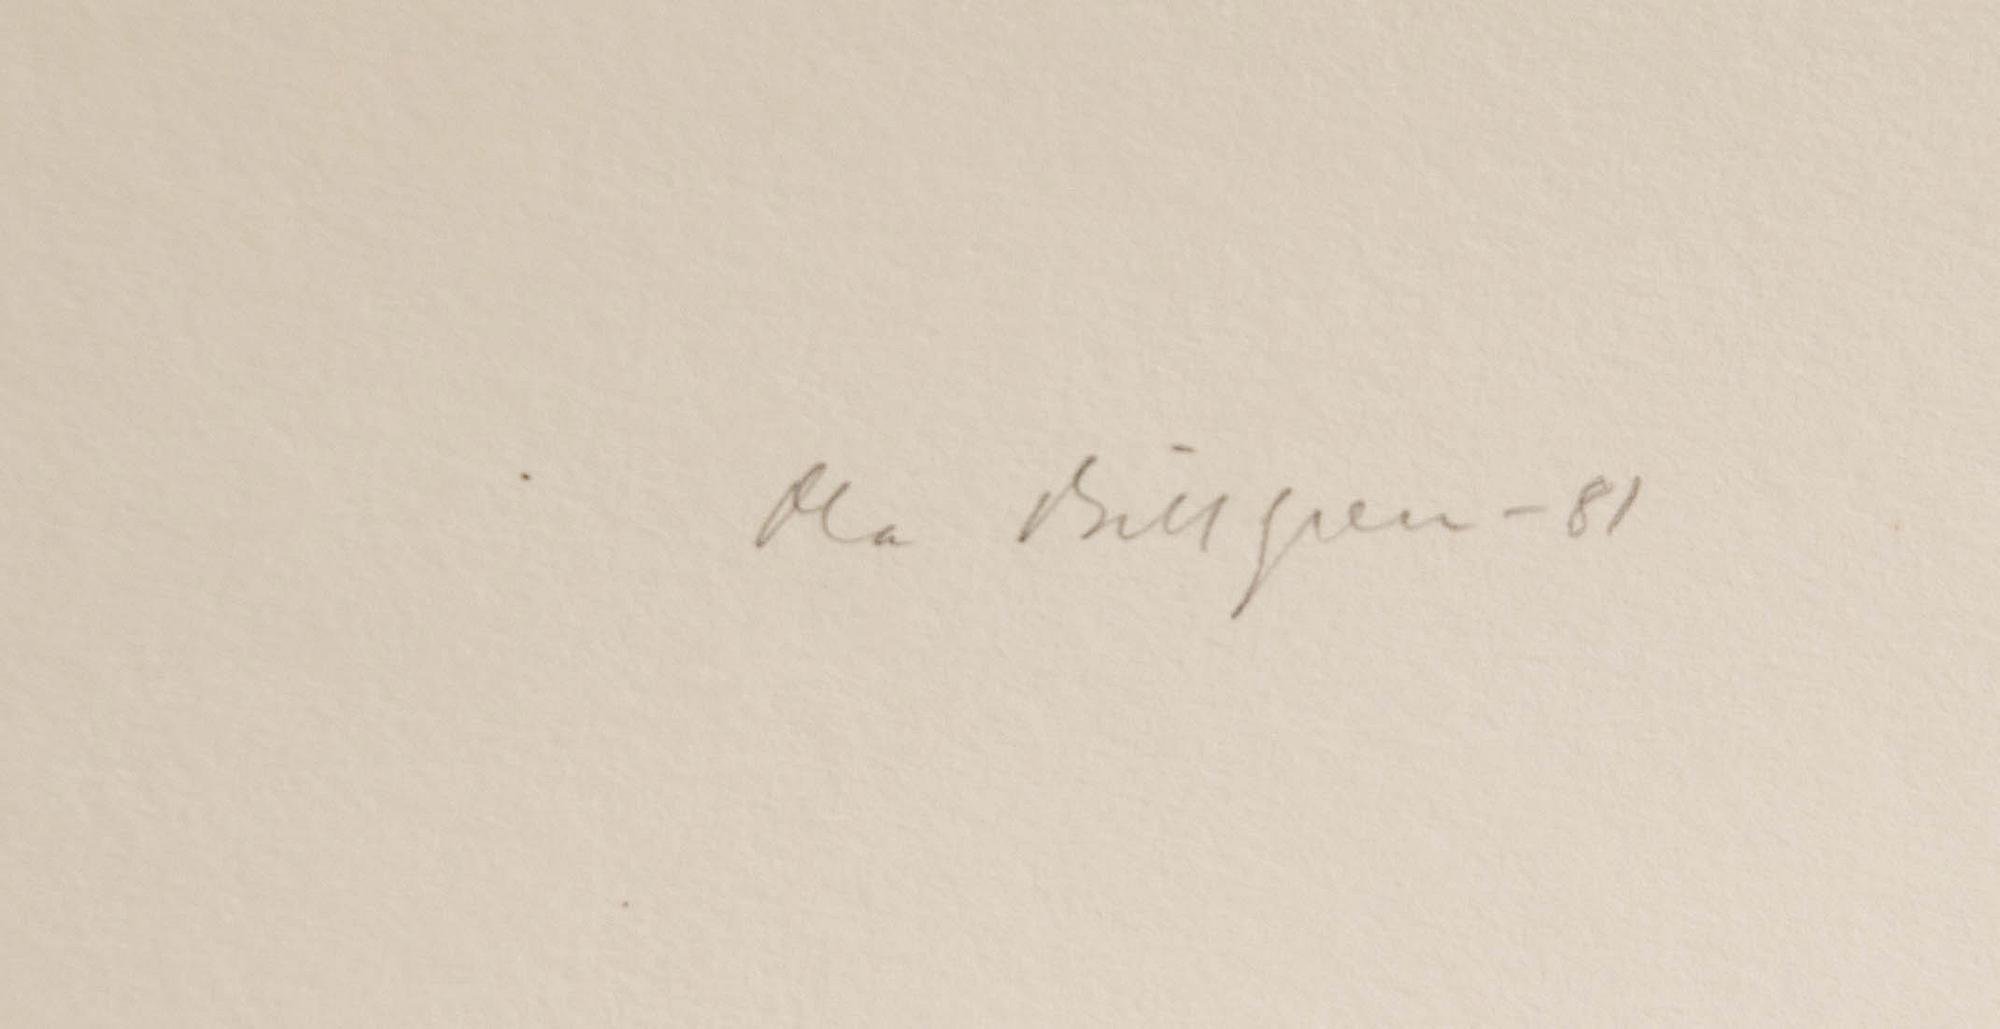 Ola Billgren -81